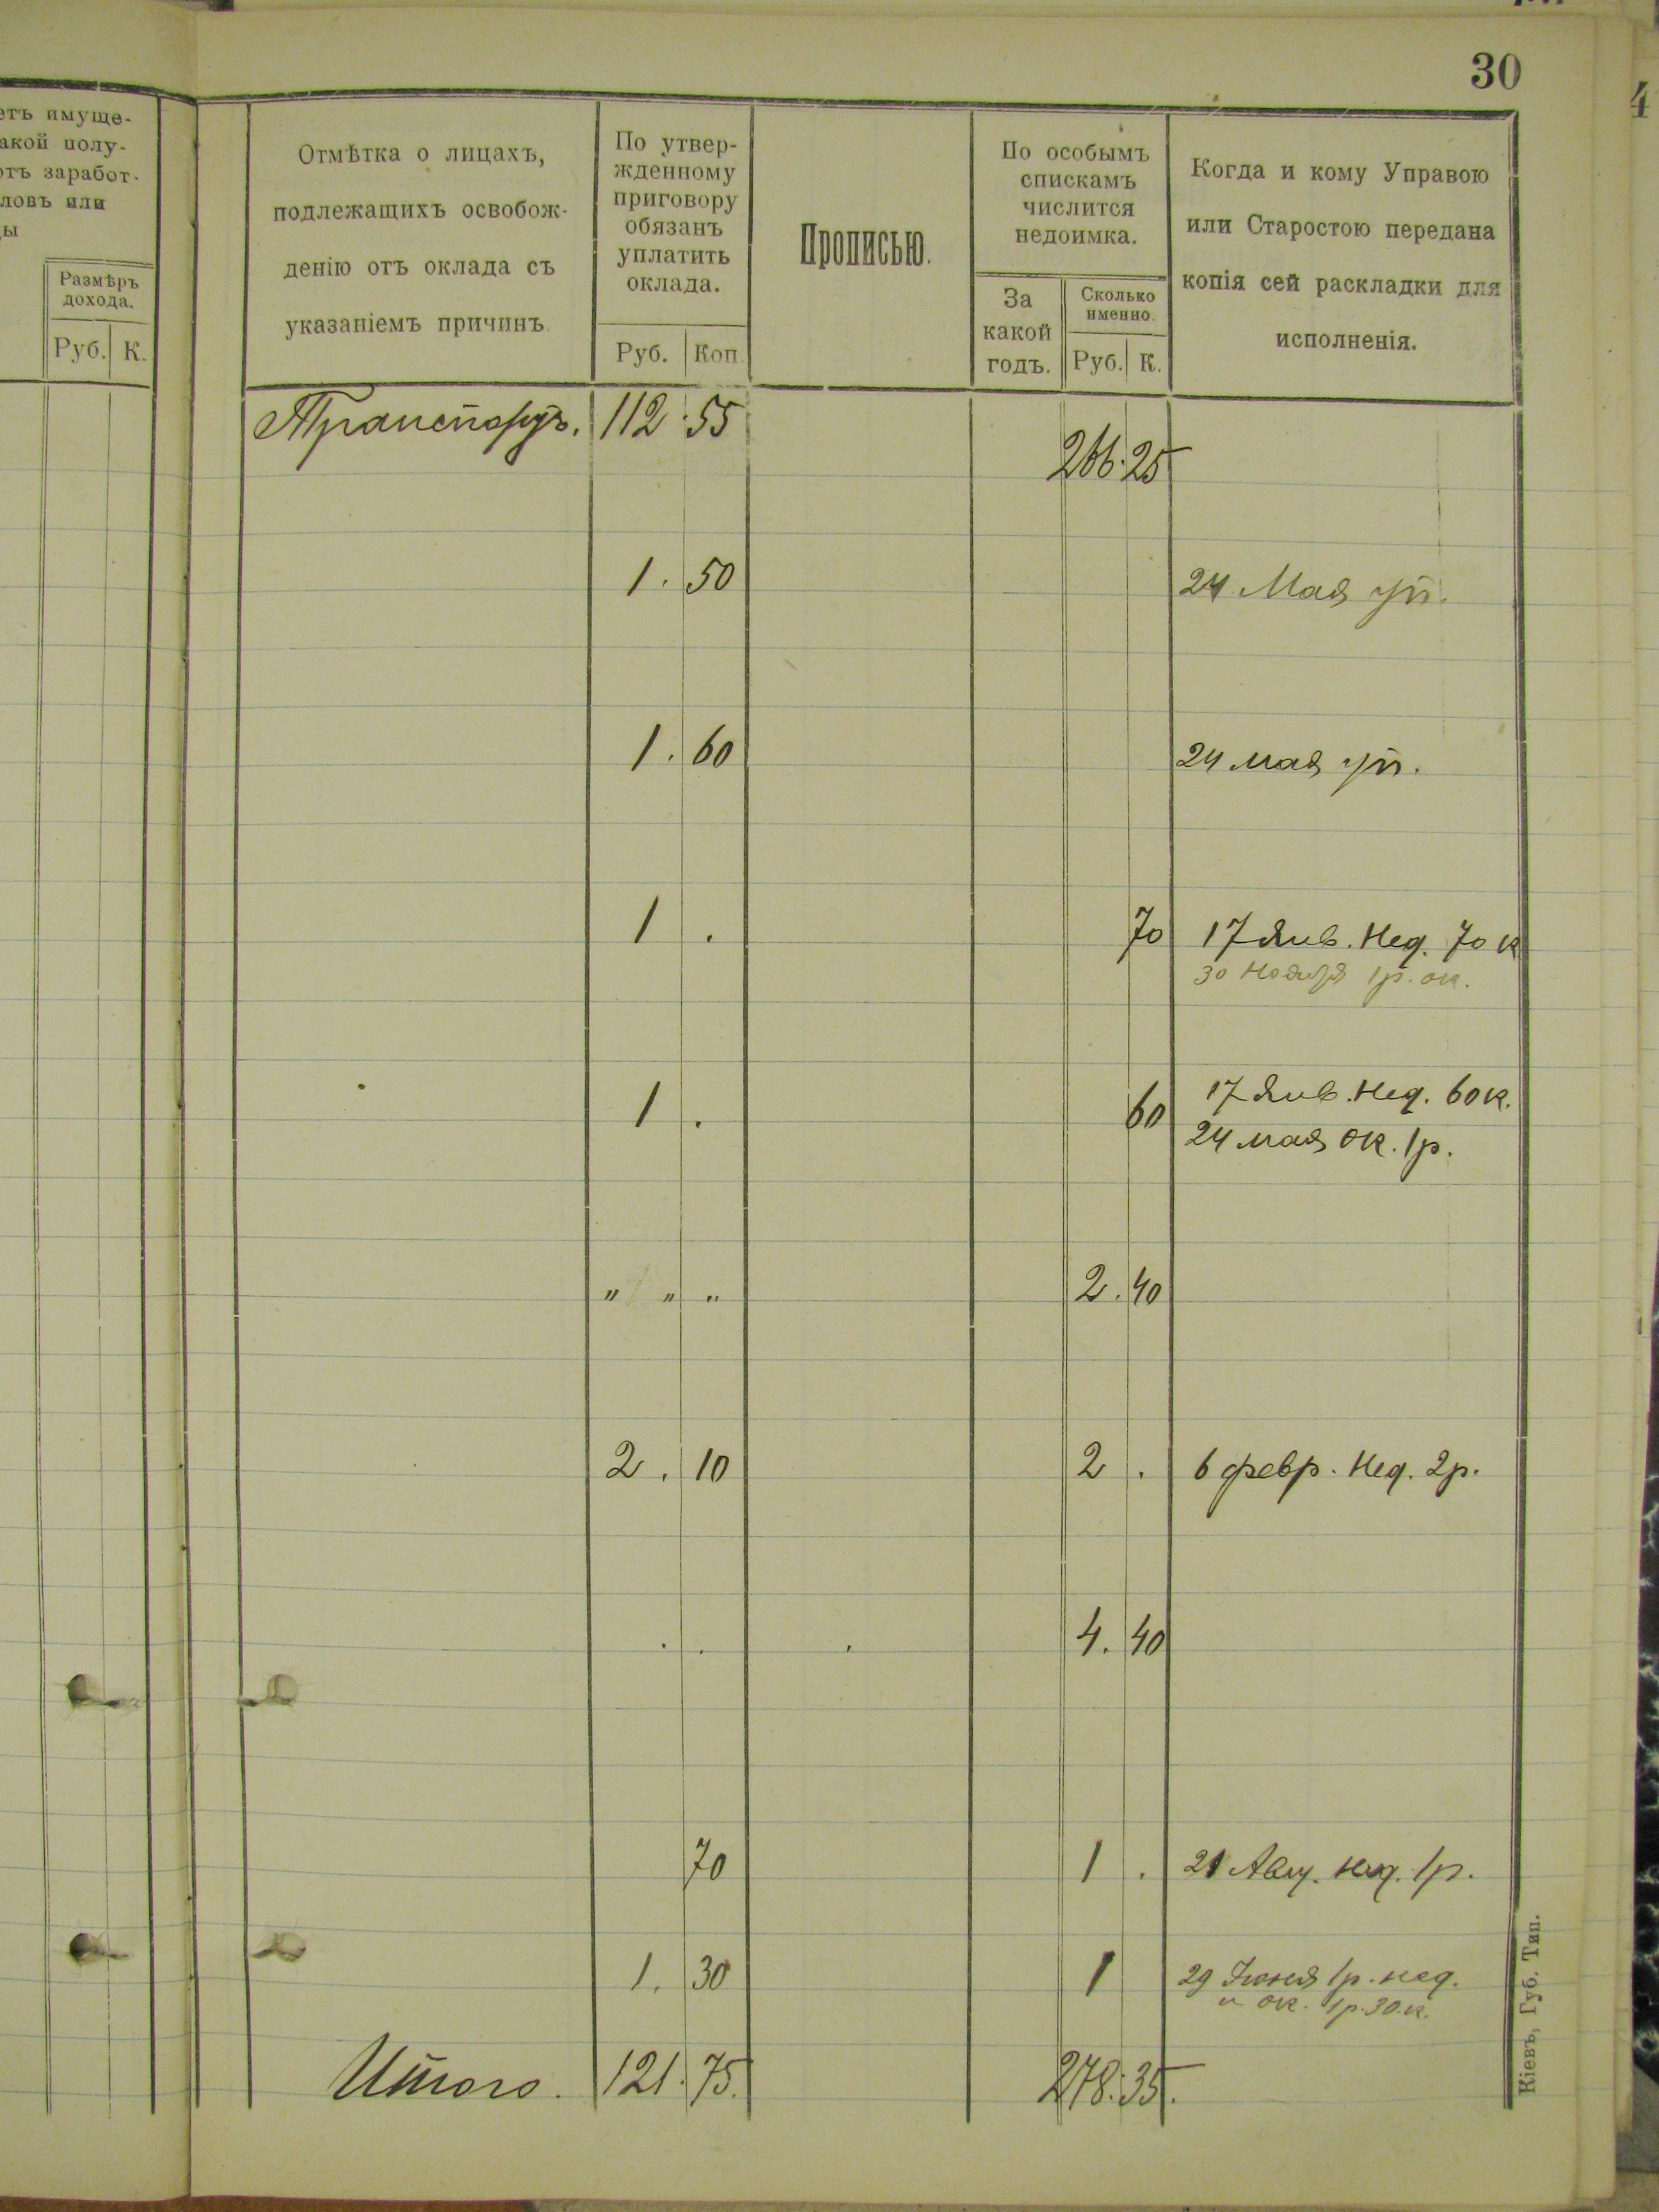 30
4
етъ имуще-
акой полу-
отъ заработ-
ловъ или
ы
Размѣръ
дохода.
Руб. К.
Отмѣтка о лицахъ,
подлежащихъ освобож-
денію отъ оклада съ
указаніемъ причинъ.
По утвер-
жденному
приговору
обязанъ
уплатить
оклада.
Руб. Коп.
Прописью.
По особымъ
спискамъ
числится
недоимка.
За
какой
годъ.
Сколько
именно.
Руб. К.
Когда и кому Управою
или Старостою передана
копія сей раскладки для
исполненія.
Транспортъ. 112.55
266.25
1. 50 24 Мая уп.
1. 60 24 мая уп.
1 . 70 17 Янв. Нед. 70 к
30 Ноября 1р. ок.
1 . 60 17 Янв. Нед. 60 к.
24 мая ок. 1р.
" " " 2. 40
2. 10 2 . 6 февр. Нед. 2р.
. . 4. 40
70 1 . 21 Авг. нед. 1р.
1. 30 1 29 Июня 1р. нед.
и ок. 1р. 30 к.
Итого. 121.75. 278.35.
Кіевъ, Губ. Тип.